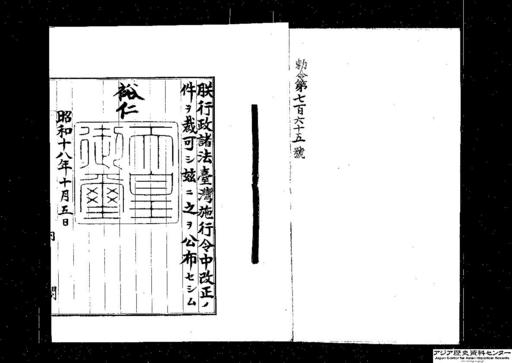 勅令第七百六十五號
朕行政諸法臺灣施行令中改正ノ
件ヲ裁可シ玆ニ之ヲ公布セシム
裕仁
天皇
御璽
昭和十八年十月五日
内閣
アジア歴史資料センター
Japan Center for Asian Historical Records